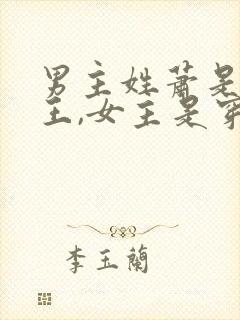 男主姓蕭是
王,女主是穿
李玉蘭